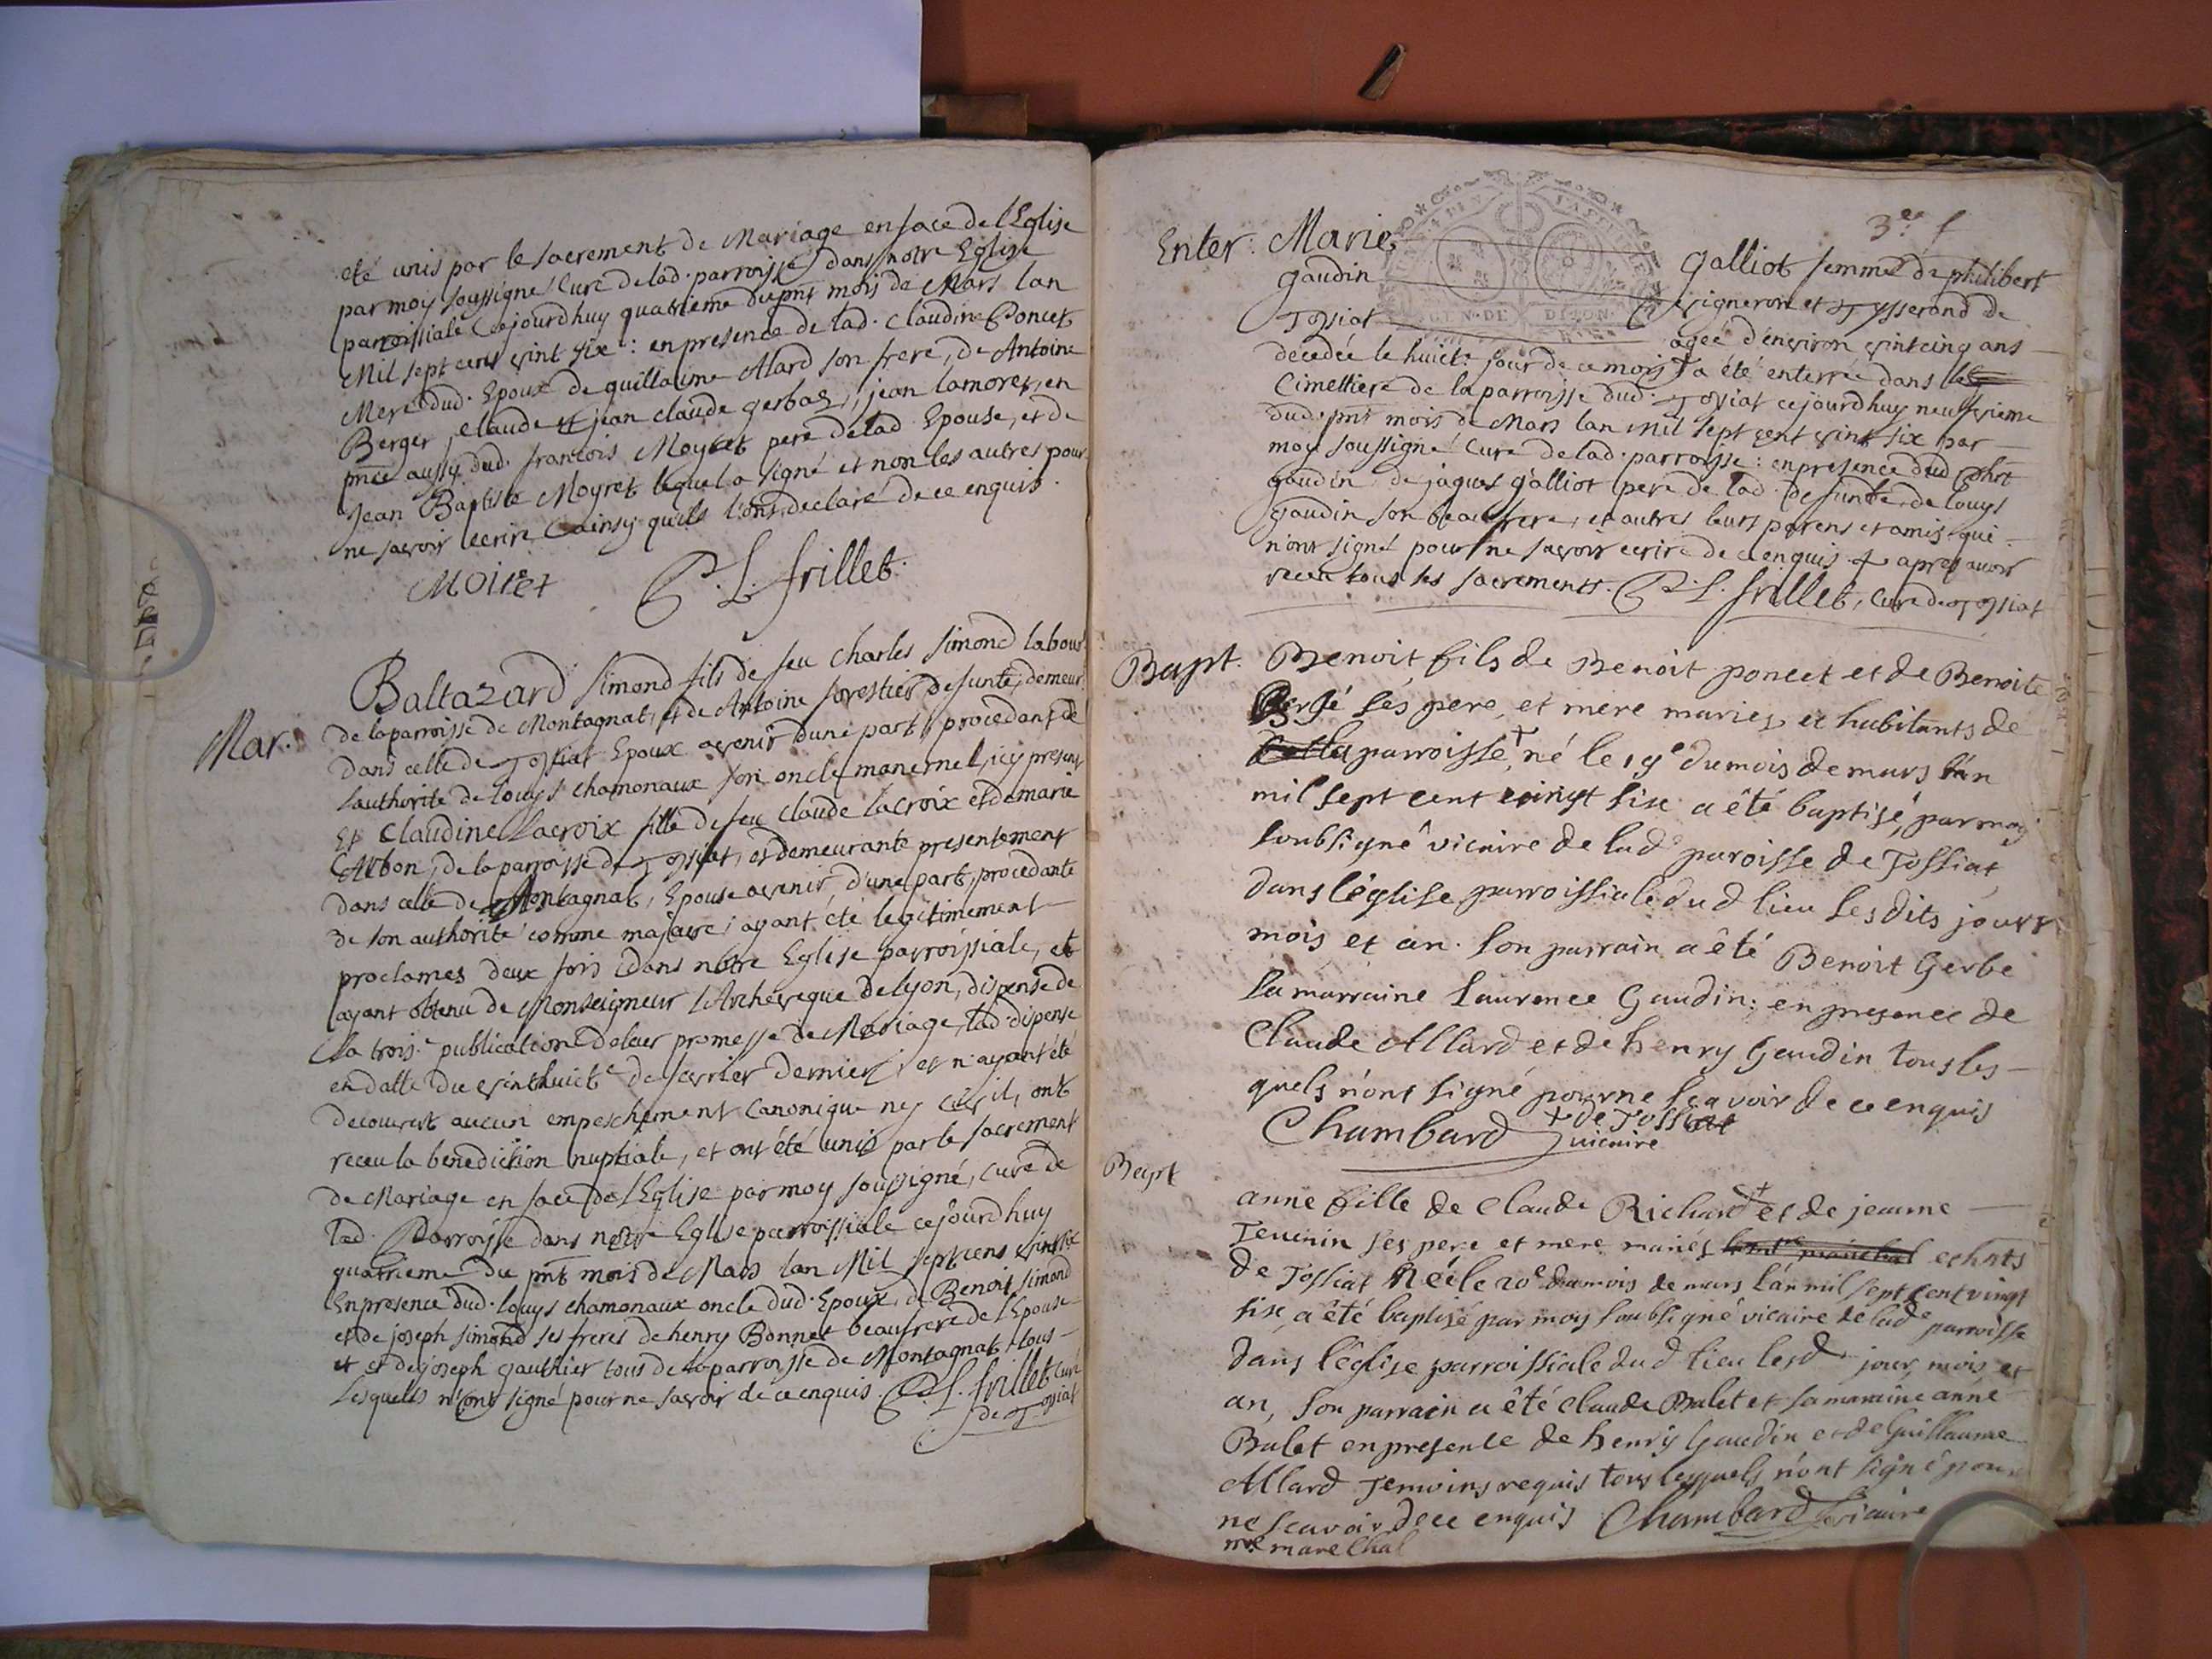 eté unis par le sacrement de Mariage en face de l'Eglise
par moy soussigné Curé de lad. parroisse dans notre Eglise
parroissiale cejourdhuy quatrieme du pnt mois de Mars lan
Mil sept cens vint six : en presence de lad. Claudine Poncet
Mere dud. Epoux de guillaume Alard son frere, de Antoine
Berger, Claude et jean claude gerbas, jean lamorey, en
pnce aussy dud. francois Moyret pere de lad. Epouse, et de
Jean Baptiste Moyret lequel a signé et non les autres pour
ne savoir ecrire ainsy quils l'ont declaré de ce enquis.
Moiret P. L. frillet.
Mar. Baltazard Simond fils de feu Charles Simond labour.
de la parroisse de Montagnat, et de Antoine forestier defunte, demeur.
dans celle de Tossiat Epoux avenir d'une part, procedant de
l'authorité de louys chamonaux son oncle maternel, icy present
Et Claudine Lacroix fille de feu Claude Lacroix et de marie
Arbon, de la parroisse de Tossiat, et demeurante presentement
dans celle de Montagnat, Epouse avenir, d'une part, procedante
de son authorité comme majeure; ayant été legitimement
proclames deux fois dans notre Eglise parroissiale, et
ayant obtenu de Monseigneur l'Archeveque de lyon, dispense de
la trois.e publication de leur promesse de Mariage, lad. dispense
en datte du vint huict.e de fevrier dernier; et n'ayant été
decouvert aucun empeschement canonique ny civil, ont
receu la benediction nuptiale, et ont été unis par le sacrement
de Mariage en face de l'Eglise par moy soussigné, curé de
lad. Parroisse dans notre Eglise parroissiale cejourdhuy
quatrieme du pnt mois de Mars lan Mil sept cens vint six
En presence dud. louys chamonaux oncle dud. Epoux, de Benoit simond
et de joseph simond ses freres de henry Bonnet beaufrere de l'Epouse
et et de joseph gauthier tous de la parroisse de Montagnat tous
lesquels n'ont signé pour ne savoir de ce enquis. P. L. frillet curé
de Tossiat
3.e f
Enter. Marie Galliot femme de philibert
gaudin vigneron et Tysserand de
Tossiat agée d'environ vintcinq ans
decedée le huict.e jour de ce mois + a été enterrée dans le
Cimettiere de la parroisse dud. Tossiat cejourdhuy neufvieme
dud. pnt mois de Mars lan Mil sept cent vint six par
moy soussigné Curé de lad. parroisse : en presence dud. phbt
gaudin, de jaques galliot pere de lad. defunte, de louys
gaudin son beaufrere, et autres leurs parens et amis qui
n'ont signé pour ne savoir ecrire de ce enquis. + apres avoir
receu tous les sacrements. P. L. frillet, Curé de Tossiat
Bapt. Benoit fils de Benoit poncet et de Benoite
Gerbé ses pere, et mere mariez et habitants de
la parroisse + né le 19e du mois de mars l'an
mil sept cent vingt six a été baptisé, par moy
soubsigné vicaire de lad.e paroisse de Tossiat
dans l'église parroissiale dud lieu lesdits jours
mois et an. Son parrain a été Benoit Gerbe
sa marraine Laurence Gaudin: en presence de
Claude Allard et de henry Gaudin tous les-
quels n'ont signé pour ne scavoir de ce enquis
+ de Tossiat
Chambard vicaire
Bapt
anne fille de Claude Richard + et de jeanne
Tevenin ses pere et mere mariés et hbts
de Tossiat Née le 20e du mois de mars l'an mil sept cent vingt
six, a été baptisé par moy soubsigné vicaire de lad.e parroisse
dans l'église parroissiale dud lieu lesd. jour, mois et
an, Son parrain a été Claude Bulet et sa maraine anne
Bulet en presence de henry Gaudin et de Guillaume
Allard Temoins requis tous lesquels n'ont signé pour
ne scavoir de ce enquis Chambard Vicaire
+ me marechal